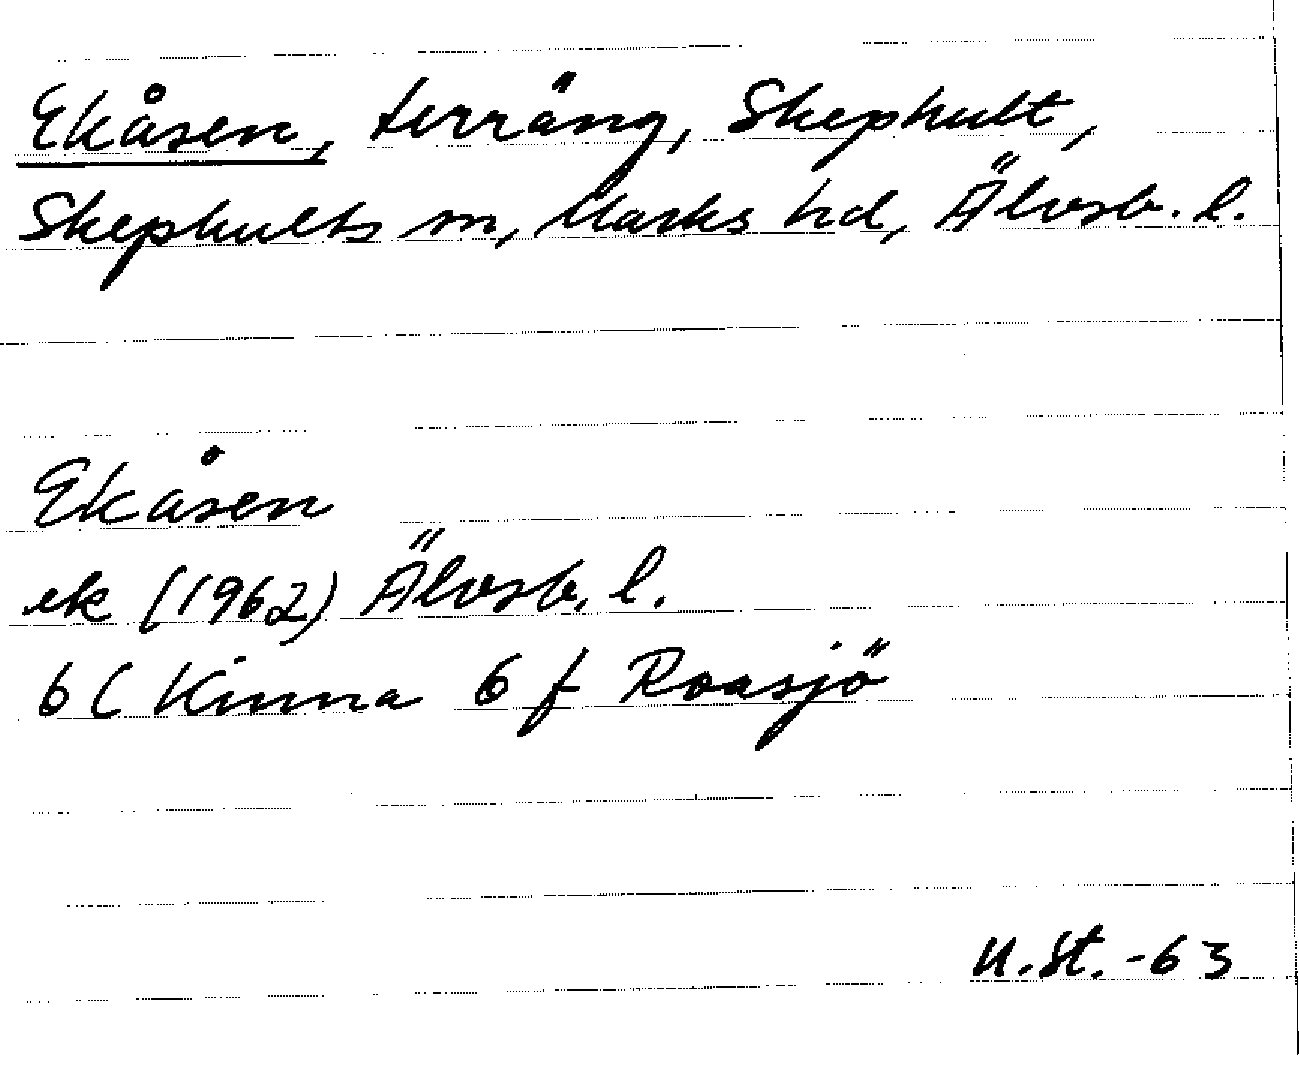 Ekåsen, terräng, Skephult,
Skephults sn, Marks hd, Älvsb. l.
Ekåsen
ek (1962) Älvsb. l.
6 C Kinna 6 f Roasjö
U.St. -63